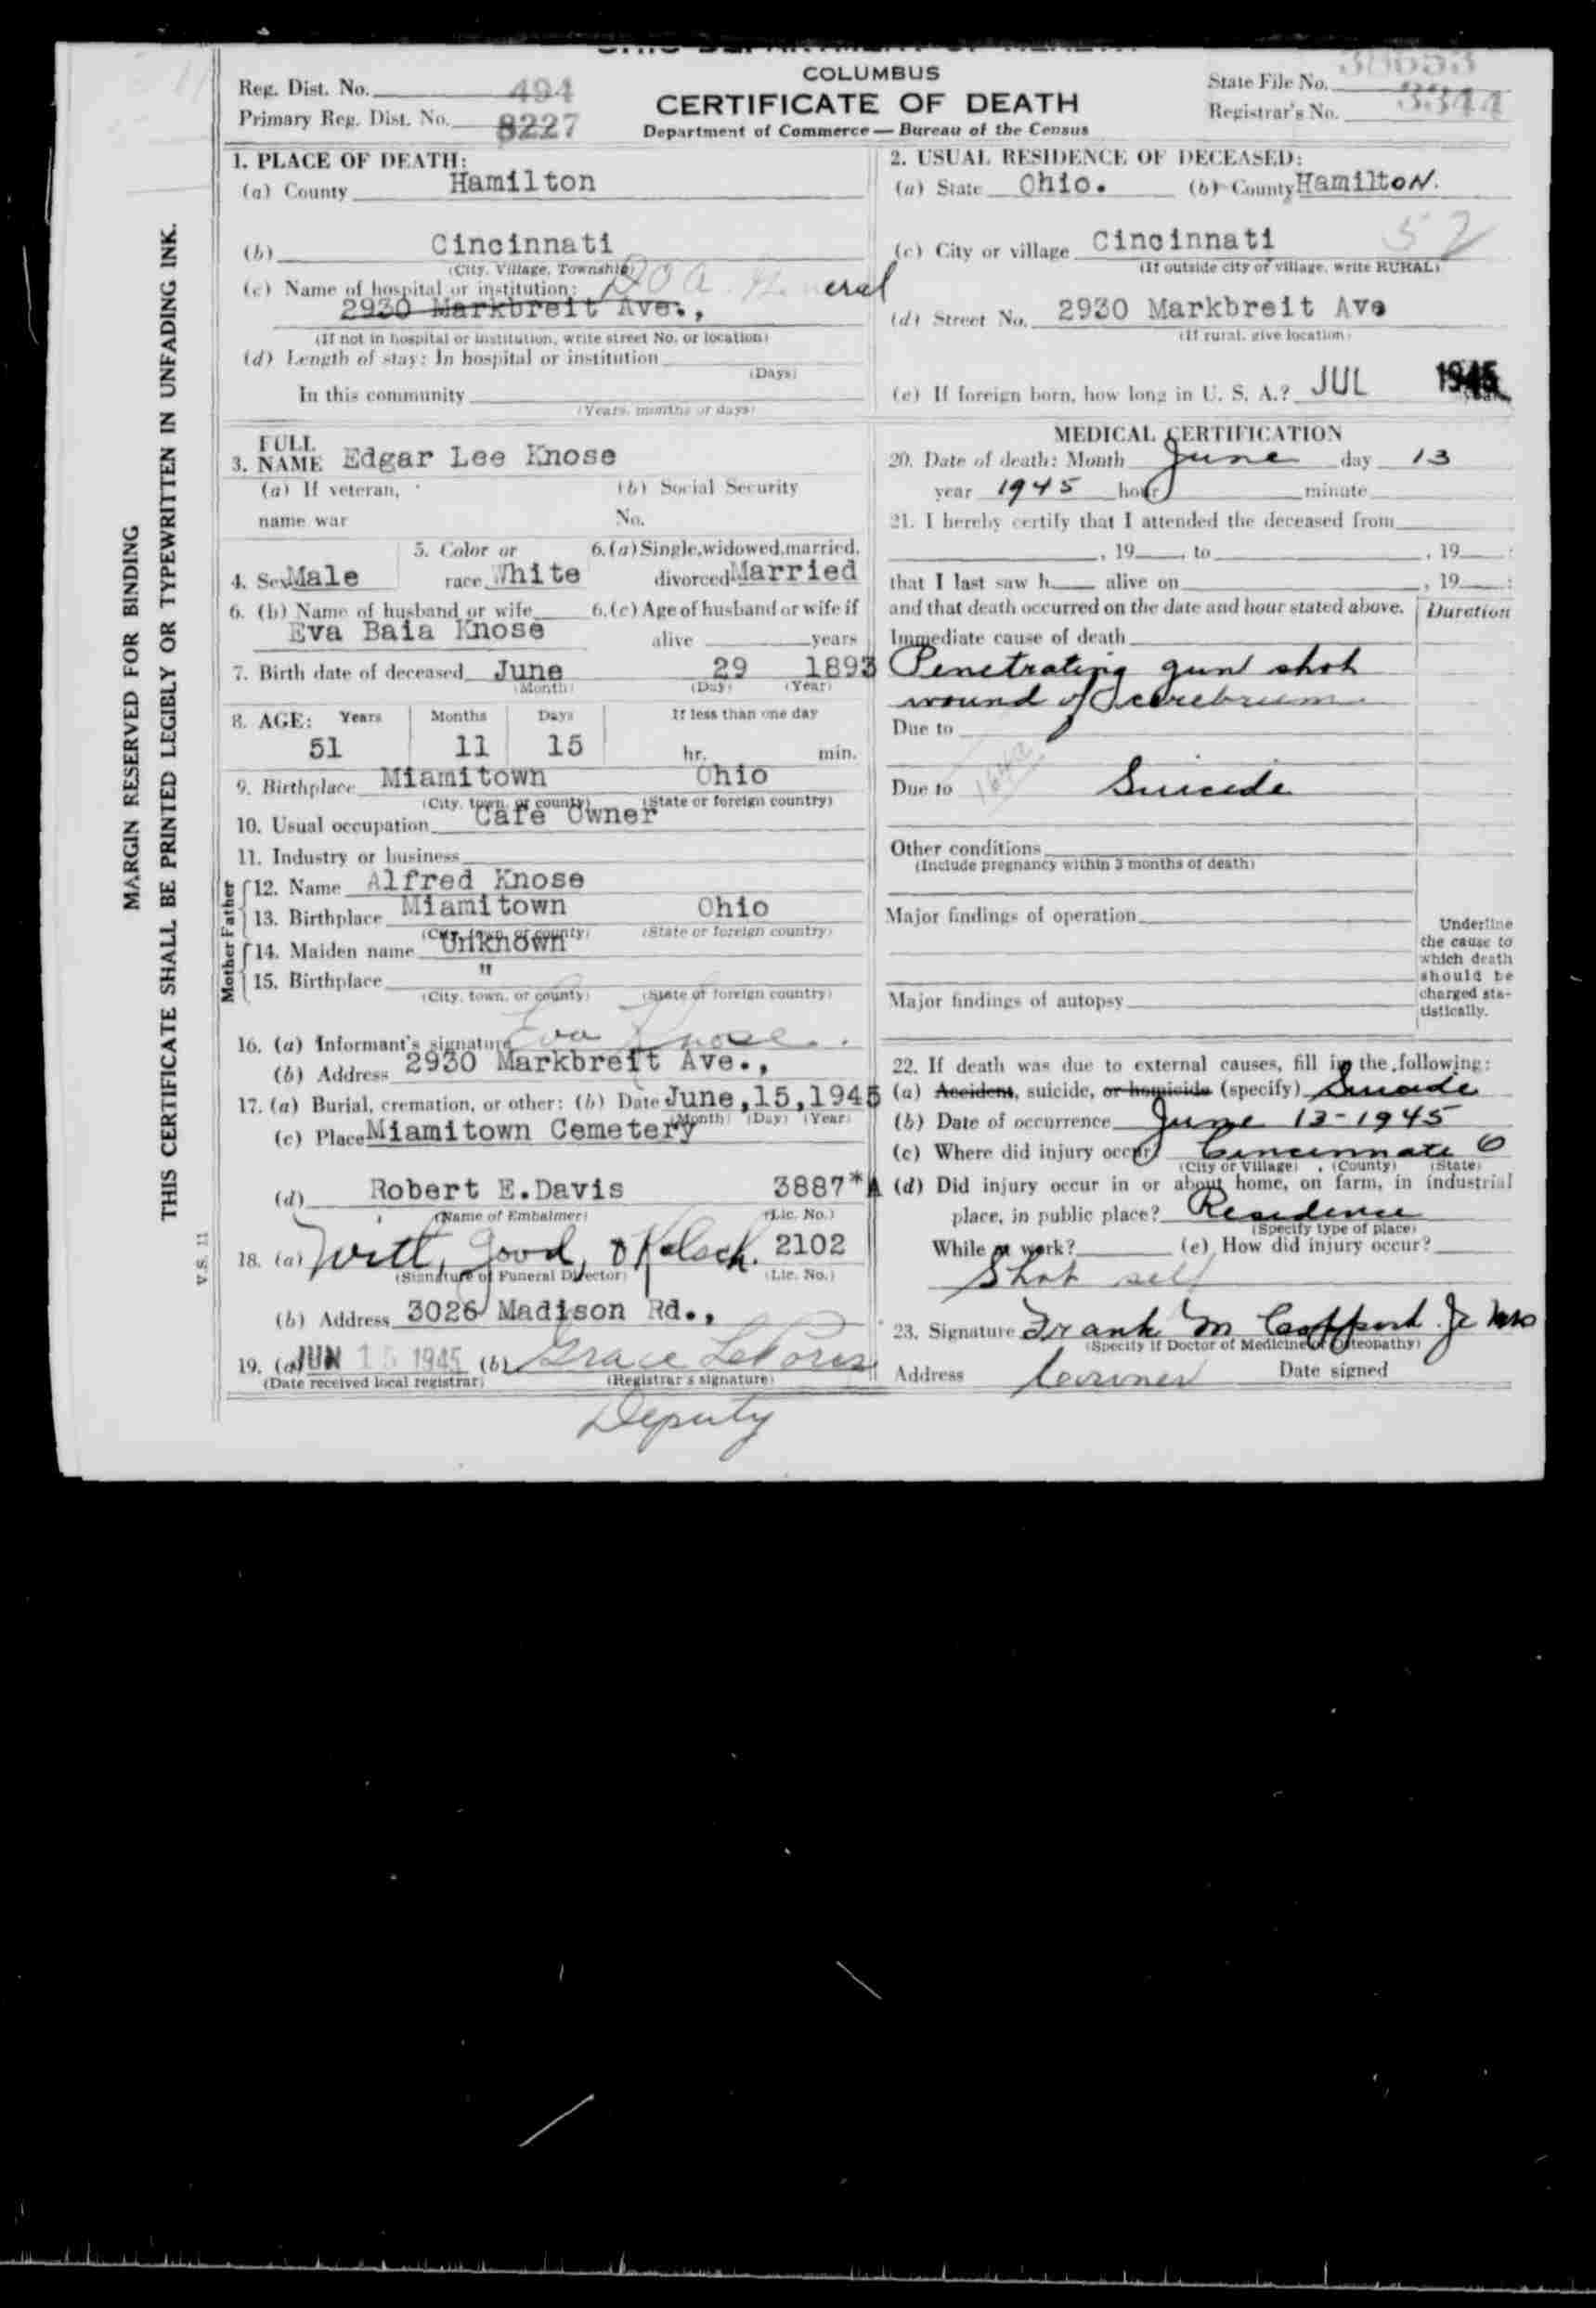 COLUMBUS
CERTIFICATE OF DEATH
Department of Commerce — Bureau of the Census
Reg. Dist. No. 494
Primary Reg. Dist. No. 8227
State File No.
Registrar's No. 3344
MARGIN RESERVED FOR BINDING
THIS CERTIFICATE SHALL BE PRINTED LEGIBLY OR TYPEWRITTEN IN UNFADING INK.
V.S. 11
1. PLACE OF DEATH:
(a) County Hamilton
(b) Cincinnati
(City, Village, Township)
(c) Name of hospital or institution: DOA General
2930 Markbreit Ave.,
(If not in hospital or institution, write street No. or location)
(d) Length of stay: In hospital or institution
(Days)
In this community
(Years, months or days)
2. USUAL RESIDENCE OF DECEASED:
(a) State Ohio. (b) County Hamilton.
(c) City or village Cincinnati 52
(If outside city or village, write RURAL)
(d) Street No. 2930 Markbreit Ave
(If rural, give location)
(e) If foreign born, how long in U. S. A.? JUL 1945
3. FULL NAME Edgar Lee Knose
(a) If veteran, (b) Social Security
name war No.
4. Sex Male 5. Color or race White 6. (a) Single, widowed, married, divorced Married
6. (b) Name of husband or wife 6. (c) Age of husband or wife if
Eva Baia Knose alive years
7. Birth date of deceased June 29 1893
(Month) (Day) (Year)
8. AGE: Years Months Days If less than one day
51 11 15 hr. min.
9. Birthplace Miamitown Ohio
(City, town, or county) (State or foreign country)
10. Usual occupation Cafe Owner
11. Industry or business
Father
12. Name Alfred Knose
13. Birthplace Miamitown Ohio
(City, town, or county) (State or foreign country)
Mother
14. Maiden name Unknown
15. Birthplace "
(City, town, or county) (State or foreign country)
16. (a) Informant's signature Eva Knose.
(b) Address 2930 Markbreit Ave.,
17. (a) Burial, cremation, or other: (b) Date June,15,1945
(Month) (Day) (Year)
(c) Place Miamitown Cemetery
(d) Robert E.Davis 3887*A
(Name of Embalmer) (Lic. No.)
18. (a) Witt, Good, & Kelsch. 2102
(Signature of Funeral Director) (Lic. No.)
(b) Address 3026 Madison Rd.,
19. (a) JUN 15 1945 (b) Grace
(Date received local registrar) (Registrar's signature)
Deputy
MEDICAL CERTIFICATION
20. Date of death: Month June day 13
year 1945 hour minute
21. I hereby certify that I attended the deceased from
, 19 , to , 19 :
that I last saw h alive on , 19 :
and that death occurred on the date and hour stated above. Duration
Immediate cause of death
Penetrating gun shot
wound of cerebrum
Due to
Due to Suicide
Other conditions
(Include pregnancy within 3 months of death)
Major findings of operation
Major findings of autopsy
Underline
the cause to
which death
should be
charged sta-
tistically.
22. If death was due to external causes, fill in the following:
(a) Accident, suicide, or homicide (specify) Suicide
(b) Date of occurrence June 13-1945
(c) Where did injury occur? Cincinnati O
(City or Village) (County) (State)
(d) Did injury occur in or about home, on farm, in industrial
place, in public place? Residence
(Specify type of place)
While at work? (e) How did injury occur?
Shot self
23. Signature Frank M Coppock Jr
(Specify if Doctor of Medicine or Osteopathy)
Address Coroner Date signed